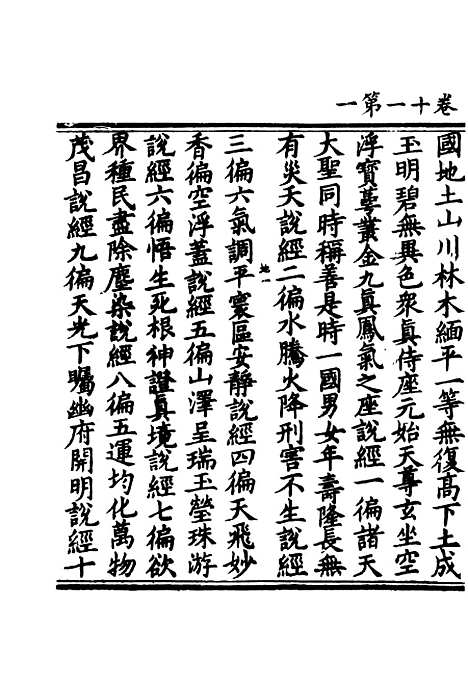 卷十一第一
國地土山川林木緬平一等無復高下土成
玉明碧無異色衆眞侍座元始天尊玄坐空
浮寶蕚叢金九眞鳳氣之座說經一徧諸天
大聖同時稱善是時一國男女年壽隆長無
有災夭說經二徧水騰火降刑害不生說經
地一
三徧六氣調平寰區安靜說經四徧天飛妙
香徧空浮蓋說經五徧山澤呈瑞玉瑩珠游
說經六徧悟生死根神證眞境說經七徧欲
界種民盡除塵染說經八徧五運均化萬物
茂昌說經九徧天光下矚幽府開明說經十